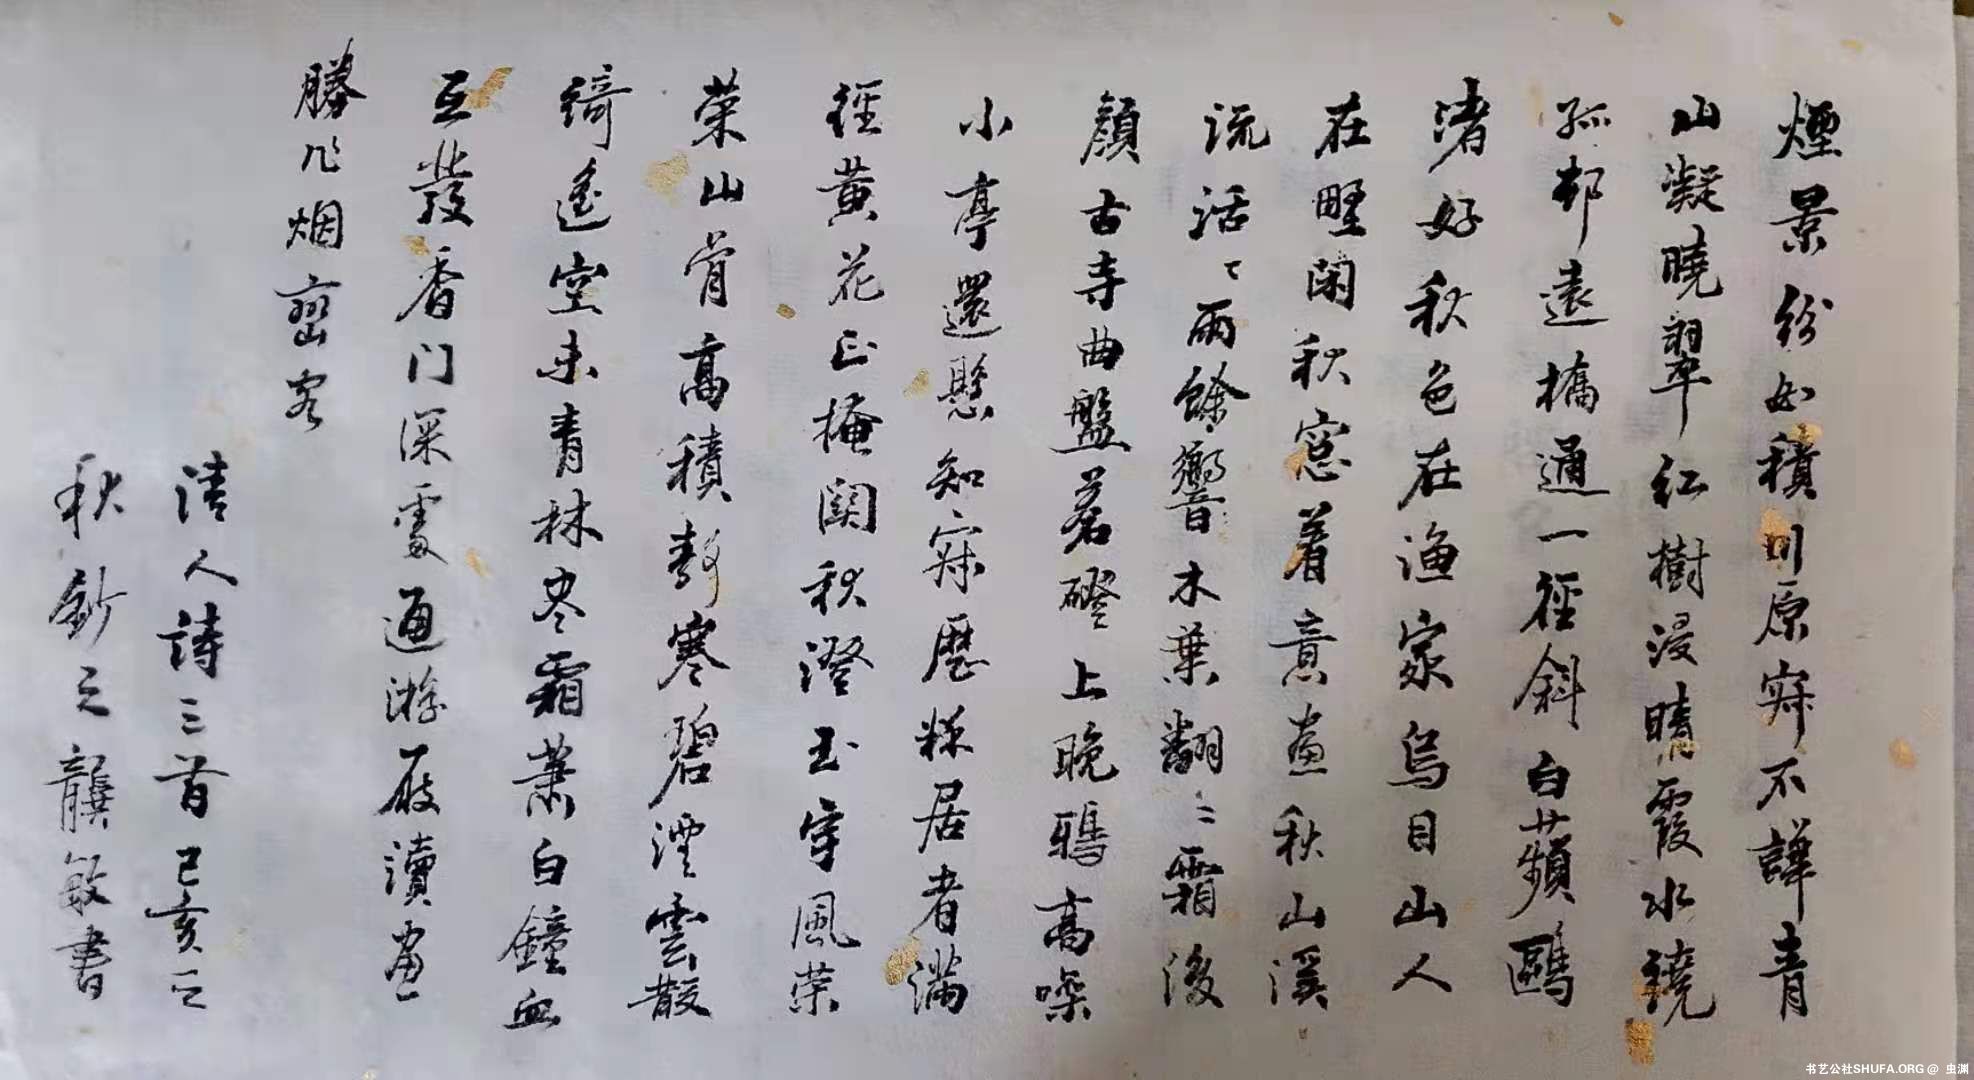 煙景紛如積川原寂不譁青
山凝曉翠紅樹浸晴霞水繞
孤邨遠橋通一徑斜白蘋鷗
渚好秋色在漁家烏目山人
在野閑秋窓着意畫秋山溪
流活〻雨餘響木葉翻〻霜後
顏古寺曲盤茗磴上晚鴉高噪
小亭還懸知寂歷稌居者滿
徑黃花正掩關秋澄玉宇風榮
榮山骨高積靜寒碧潭雲散
綺遙空未青林冬霜葉白鐘血
互發香門深處通游屐讀畫
勝似烟巒客
清人詩三首己亥之
秋鈔之龔敏書
书艺公社SHUFA.ORG@ 虫渊